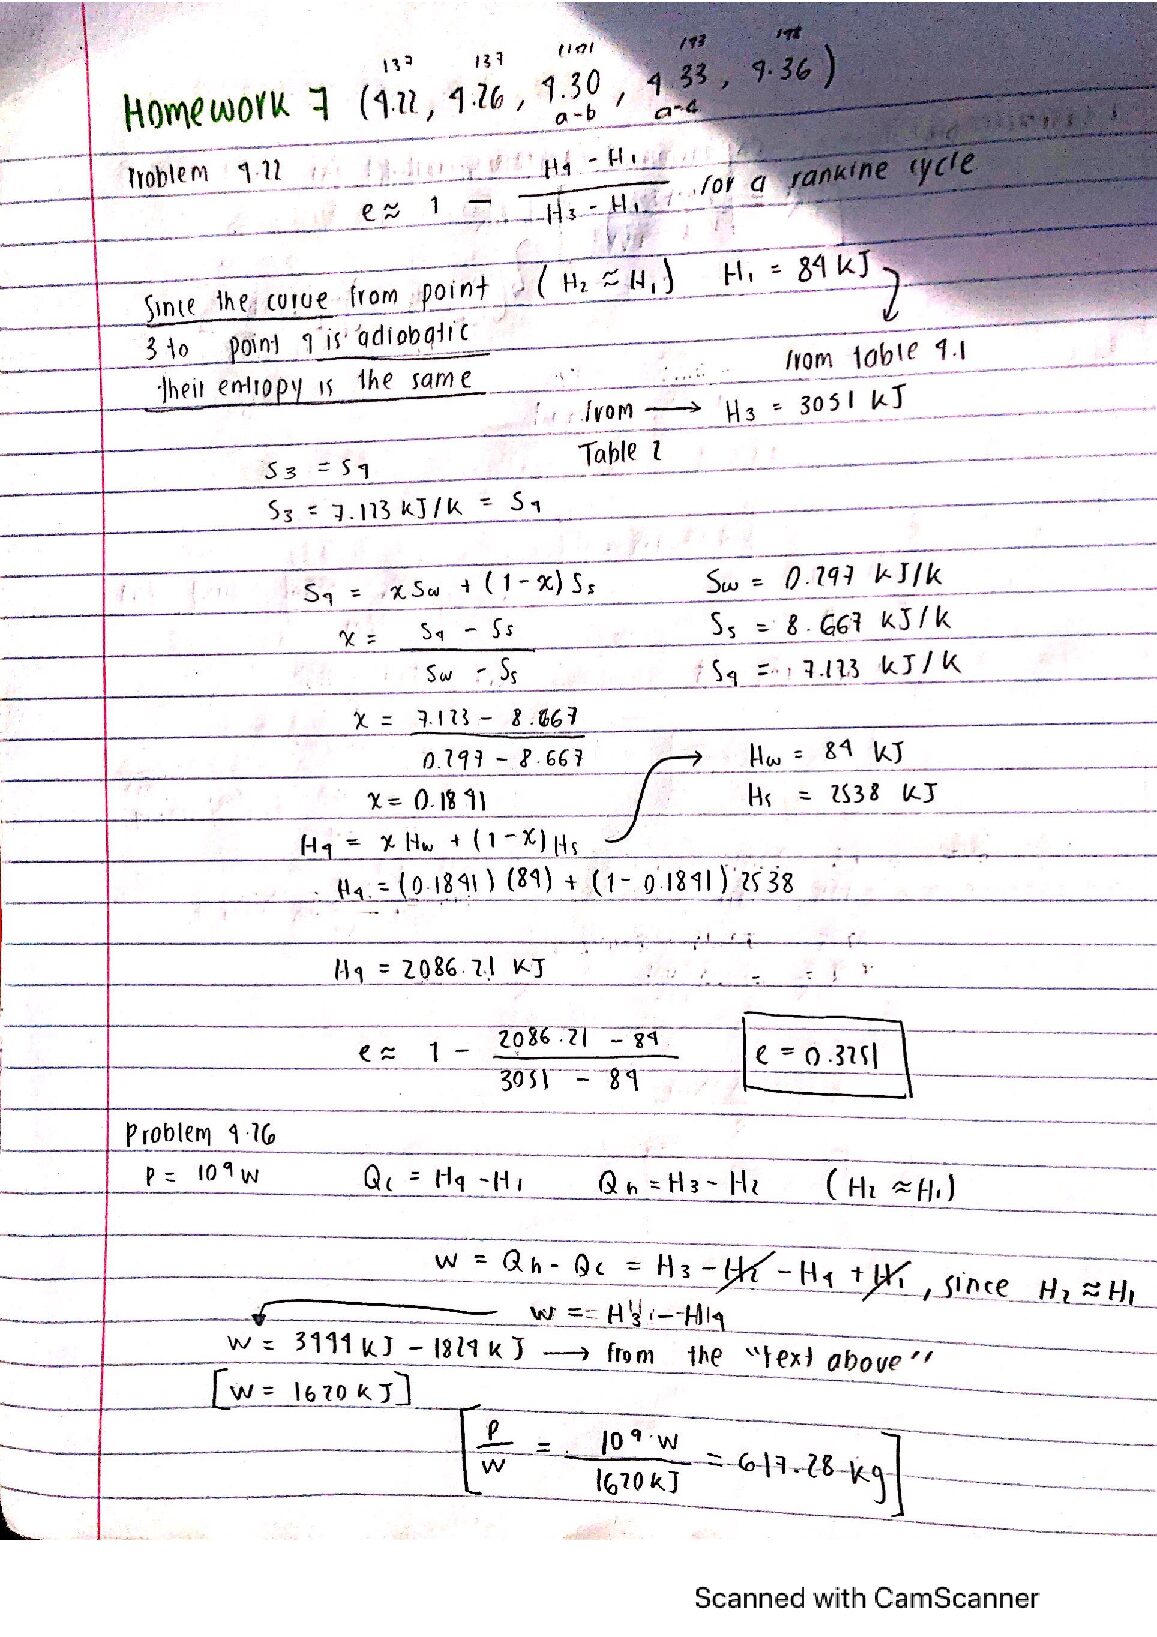 137 137 193 198
Homework 7 (4.22, 4.26, 4.30, 4.33, 4.36)
a-b a-c
Problem 4.22
e ≈ 1 - (H4 - H1)/(H3 - H1) for a rankine cycle
Since the curve from point (H2 ≈ H1) H1 = 84 kJ
3 to point 4 is adiabatic from table 4.1
their entropy is the same
from → H3 = 3051 kJ
Table 2
S3 = S4
S3 = 7.123 kJ/K = S4
S4 = xSw + (1-x)Ss Sw = 0.297 kJ/K
x = (S4 - Ss)/(Sw - Ss) Ss = 8.667 kJ/K
S4 = 7.123 kJ/K
x = (7.123 - 8.667)/(0.297 - 8.667) Hw = 84 kJ
x = 0.1841 Hs = 2538 kJ
H4 = xHw + (1-x)Hs
H4 = (0.1841)(84) + (1-0.1841)2538
H4 = 2086.21 kJ
e ≈ 1 - (2086.21 - 84)/(3051 - 84) e = 0.3251
Problem 4.26
P = 10⁹ W Qc = H4 - H1 Qh = H3 - H2 (H2 ≈ H1)
W = Qh - Qc = H3 - H2 - H4 + H1, since H2 ≈ H1
W = H3 - H4
W = 3444 kJ - 1824 kJ → from the "text above"
[W = 1620 kJ]
[P/W = 10⁹ W/1620 kJ = 617.28 kg]
Scanned with CamScanner